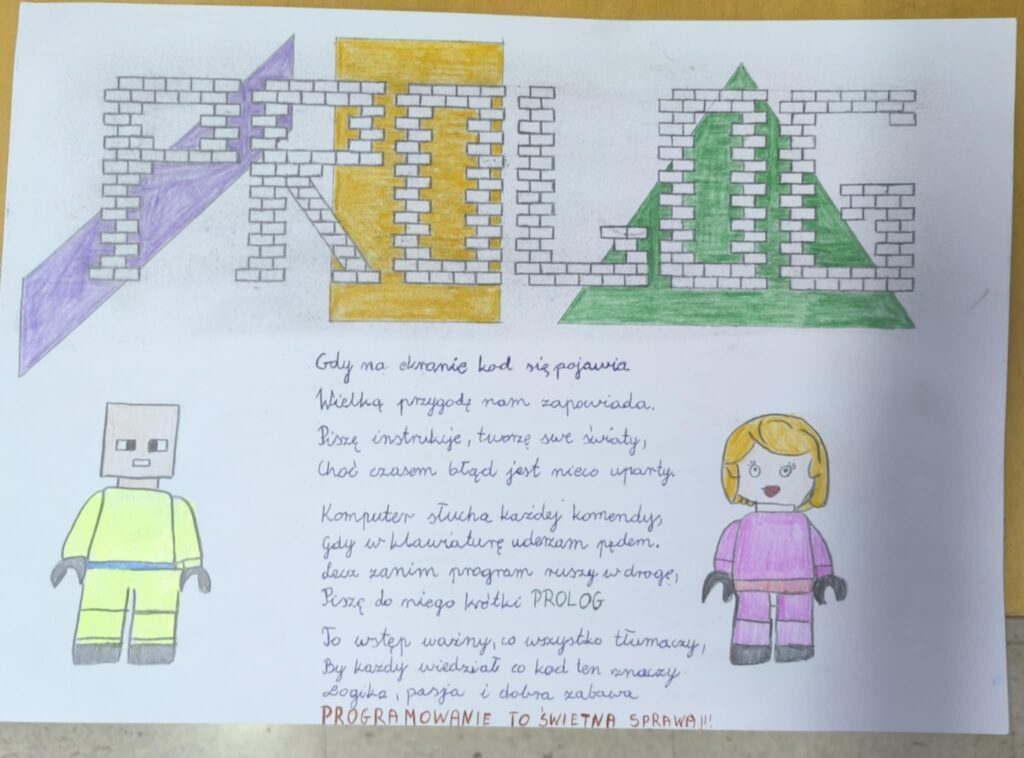 PROLOG
Gdy na ekranie kod się pojawia
Wielką przygodę nam zapowiada.
Piszę instrukje, tworzę swe światy,
Choć czasem błąd jest nieco uparty.
Komputer słucha każdej komendy,
Gdy w klawiaturę uderzam pędem.
Lecz zanim program ruszy w drogę,
Piszę do niego krótki PROLOG
To wstęp ważny, co wszystko tłumaczy,
By każdy wiedział co kod ten znaczy
Logika, pasja i dobra zabawa
PROGRAMOWANIE TO ŚWIETNA SPRAWA!!!